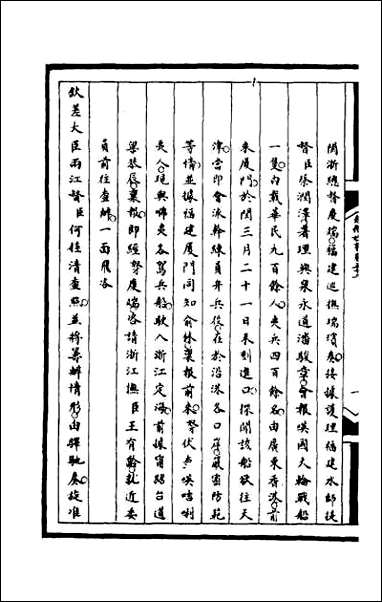 閩浙總督慶瑞福建巡撫瑞璸奏接據護理福建水師提
督臣張潤澤署理興泉永道潘駿章會報咪國火輪戰船
一隻內載華民九百餘人夷兵四百餘名由廣東香港前
來廈門於閏三月二十一日未刻進口探聞該船欲往天
津當即會派幹練員弁兵役在於沿海各口岸嚴密防範
等情並據福建廈門同知俞林稟報前來努伏查咪唎
夷人現與咈夷各駕兵船駛入浙江定海前據甯紹台道
梁恭辰稟報即經努慶瑞咨請浙江撫臣王有齡就近委
員前往查辦一面飛咨
欽差大臣兩江督臣何桂清查照並將籌辦情形由驛馳奏旋准